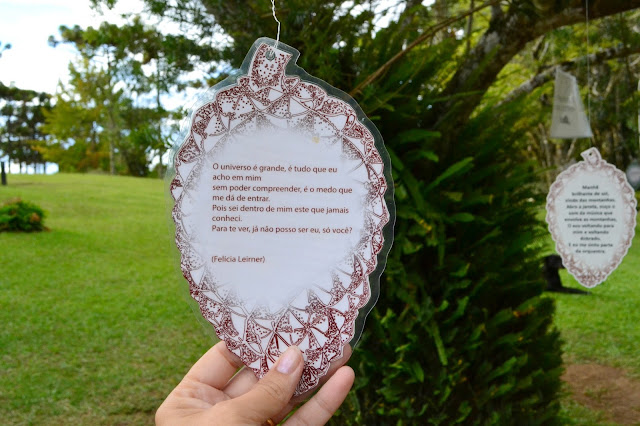 O universo é grande, é tudo que eu
acho em mim
sem poder compreender, é o medo que
me dá de entrar.
Pois sei dentro de mim este que jamais
conheci.
Para te ver, já não posso ser eu, só você?
(Felícia Leirner)
Manhã
brilhante de sol,
vindo das montanhas.
Abro a janela, ouço o
som da música que
envolve as montanhas.
O eco voltando para
mim e voltando
dobrado.
E eu me sinto parte
da orquestra.